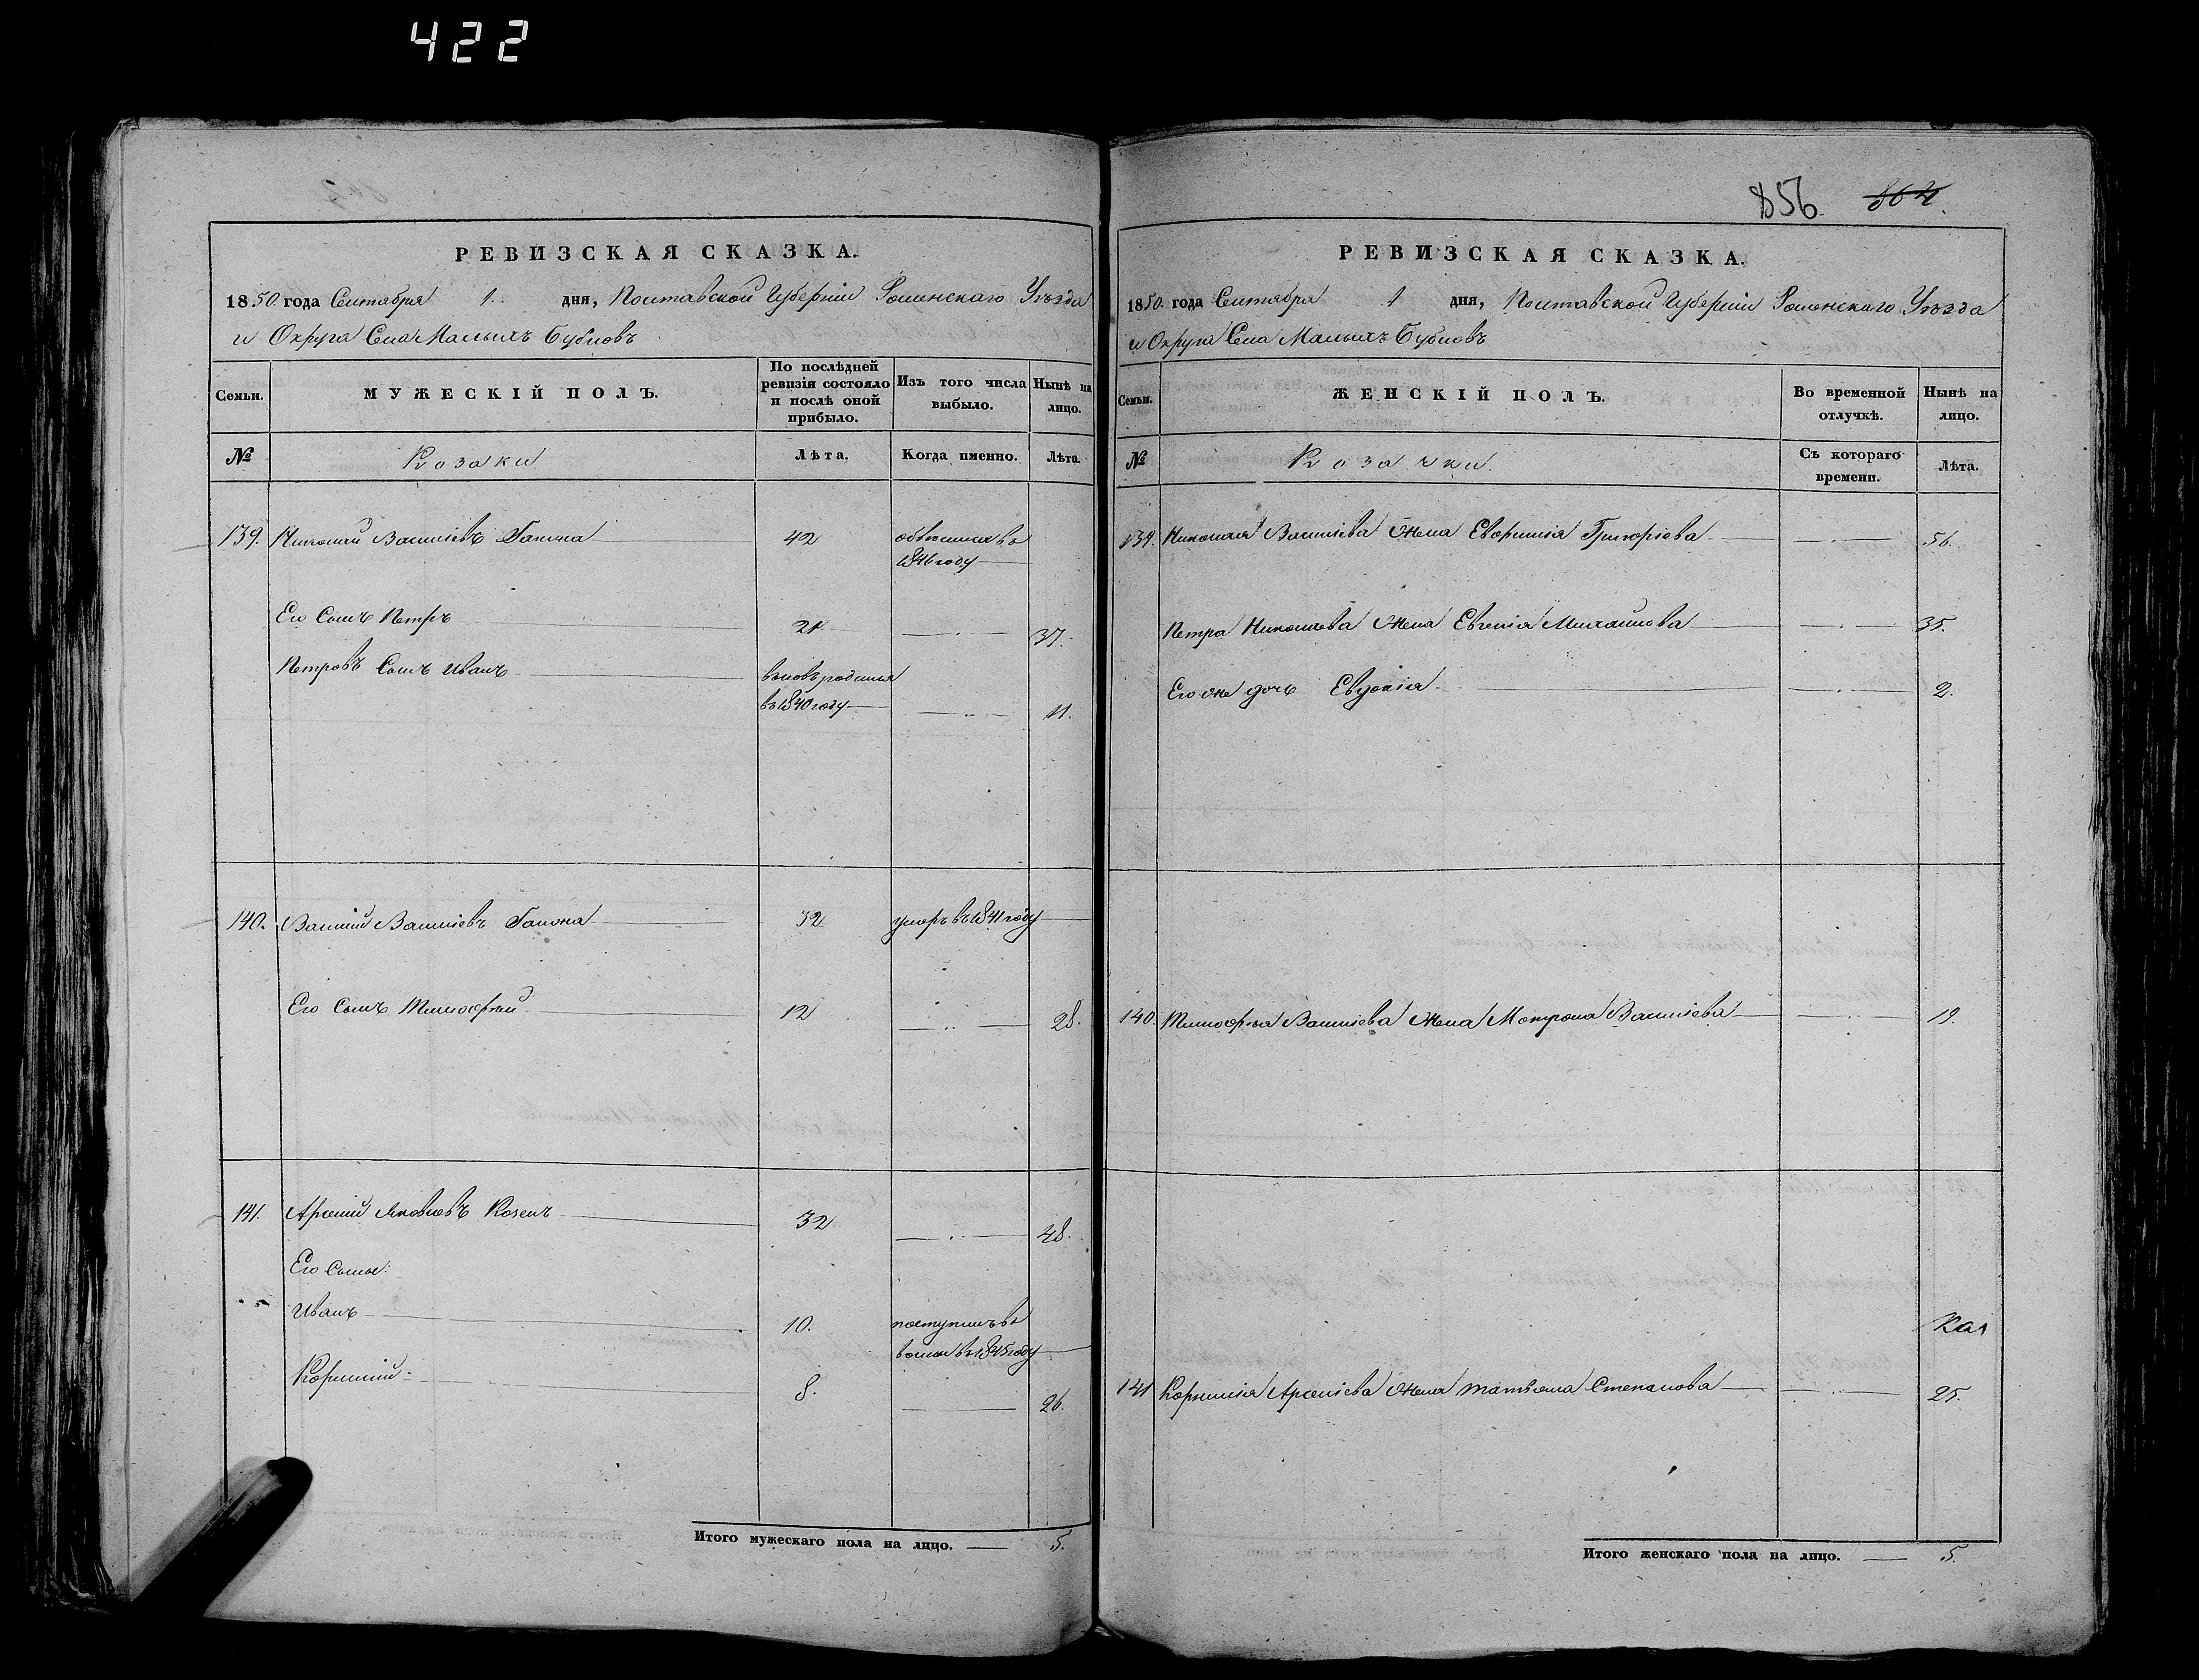 422
856. 864.
РЕВИЗСКАЯ СКАЗКА.
1850. года Сентября 1. дня, Полтавской Губерніи Роменскаго Уѣзда
и Округа Села Малыхъ Бубновъ
Семьи.
МУЖЕСКІЙ ПОЛЪ.
По послѣдней
ревизіи состояло
и послѣ оной
прибыло.
Изъ того числа
выбыло.
Нынѣ на
лицо.
№
Козаки
Лѣта.
Когда именно.
Лѣта.
139. Николай Василіевъ Гапона 42
въ
1846 году
Его Сынъ Петръ 21 37.
Петровъ Сынъ Иванъ вновь родился
въ 1840 году 11.
140. Василий Василіевъ Гапона 32 умеръ въ 1841 году
Его Сынъ Тимофѣй 12 28.
141. Арсений Яковлевъ 32 48.
Его Сыны:
Иванъ 10. поступилъ въ
въ 1845 году
Корнилий 8. 26.
Итого мужескаго пола на лицо. 5.
РЕВИЗСКАЯ СКАЗКА.
1850. года Сентября 1 дня, Полтавской Губерніи Роменскаго Уѣзда
и Округа Села Малыхъ Бубновъ
Семьи.
ЖЕНСКІЙ ПОЛЪ.
Во временной
отлучкѣ.
Нынѣ на
лицо.
№
Козачки.
Съ котораго
времени.
Лѣта.
139. Николая Василіева Жена Григоріева 56.
Петра Николаева Жена Евгенія Михайлова 35.
Его же дочь Евдокія 2.
140. Тимофѣя Василіева жена Мотрона Василіева 19.
141 Корнилія Арсеніева Жена Татіана Степанова 25.
Итого женскаго пола на лицо. 5.